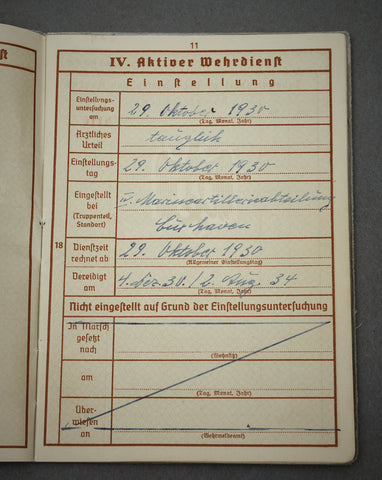 11
IV. Aktiver Wehrdienst
Einstellung
Einstellungs-
untersuchung
am
29. Oktober 1930
(Tag, Monat, Jahr)
Ärztliches
Urteil
tauglich
Einstellungs-
tag
29. Oktober 1930
(Tag, Monat, Jahr)
Eingestellt
bei
(Truppenteil,
Standort)
IV. Marineartillerieabteilung
Cuxhaven
18
Dienstzeit
rechnet ab
29. Oktober 1930
(Allgemeiner Einstellungstag)
Vereidigt
am
4. Dez. 30. / 2. Aug. 34
(Tag, Monat, Jahr)
Nicht eingestellt auf Grund der Einstellungsuntersuchung
In Marsch
gesetzt
nach
(Wohnsitz)
am
(Tag, Monat, Jahr)
Über-
wiesen
an
(Wehrmeldeamt)